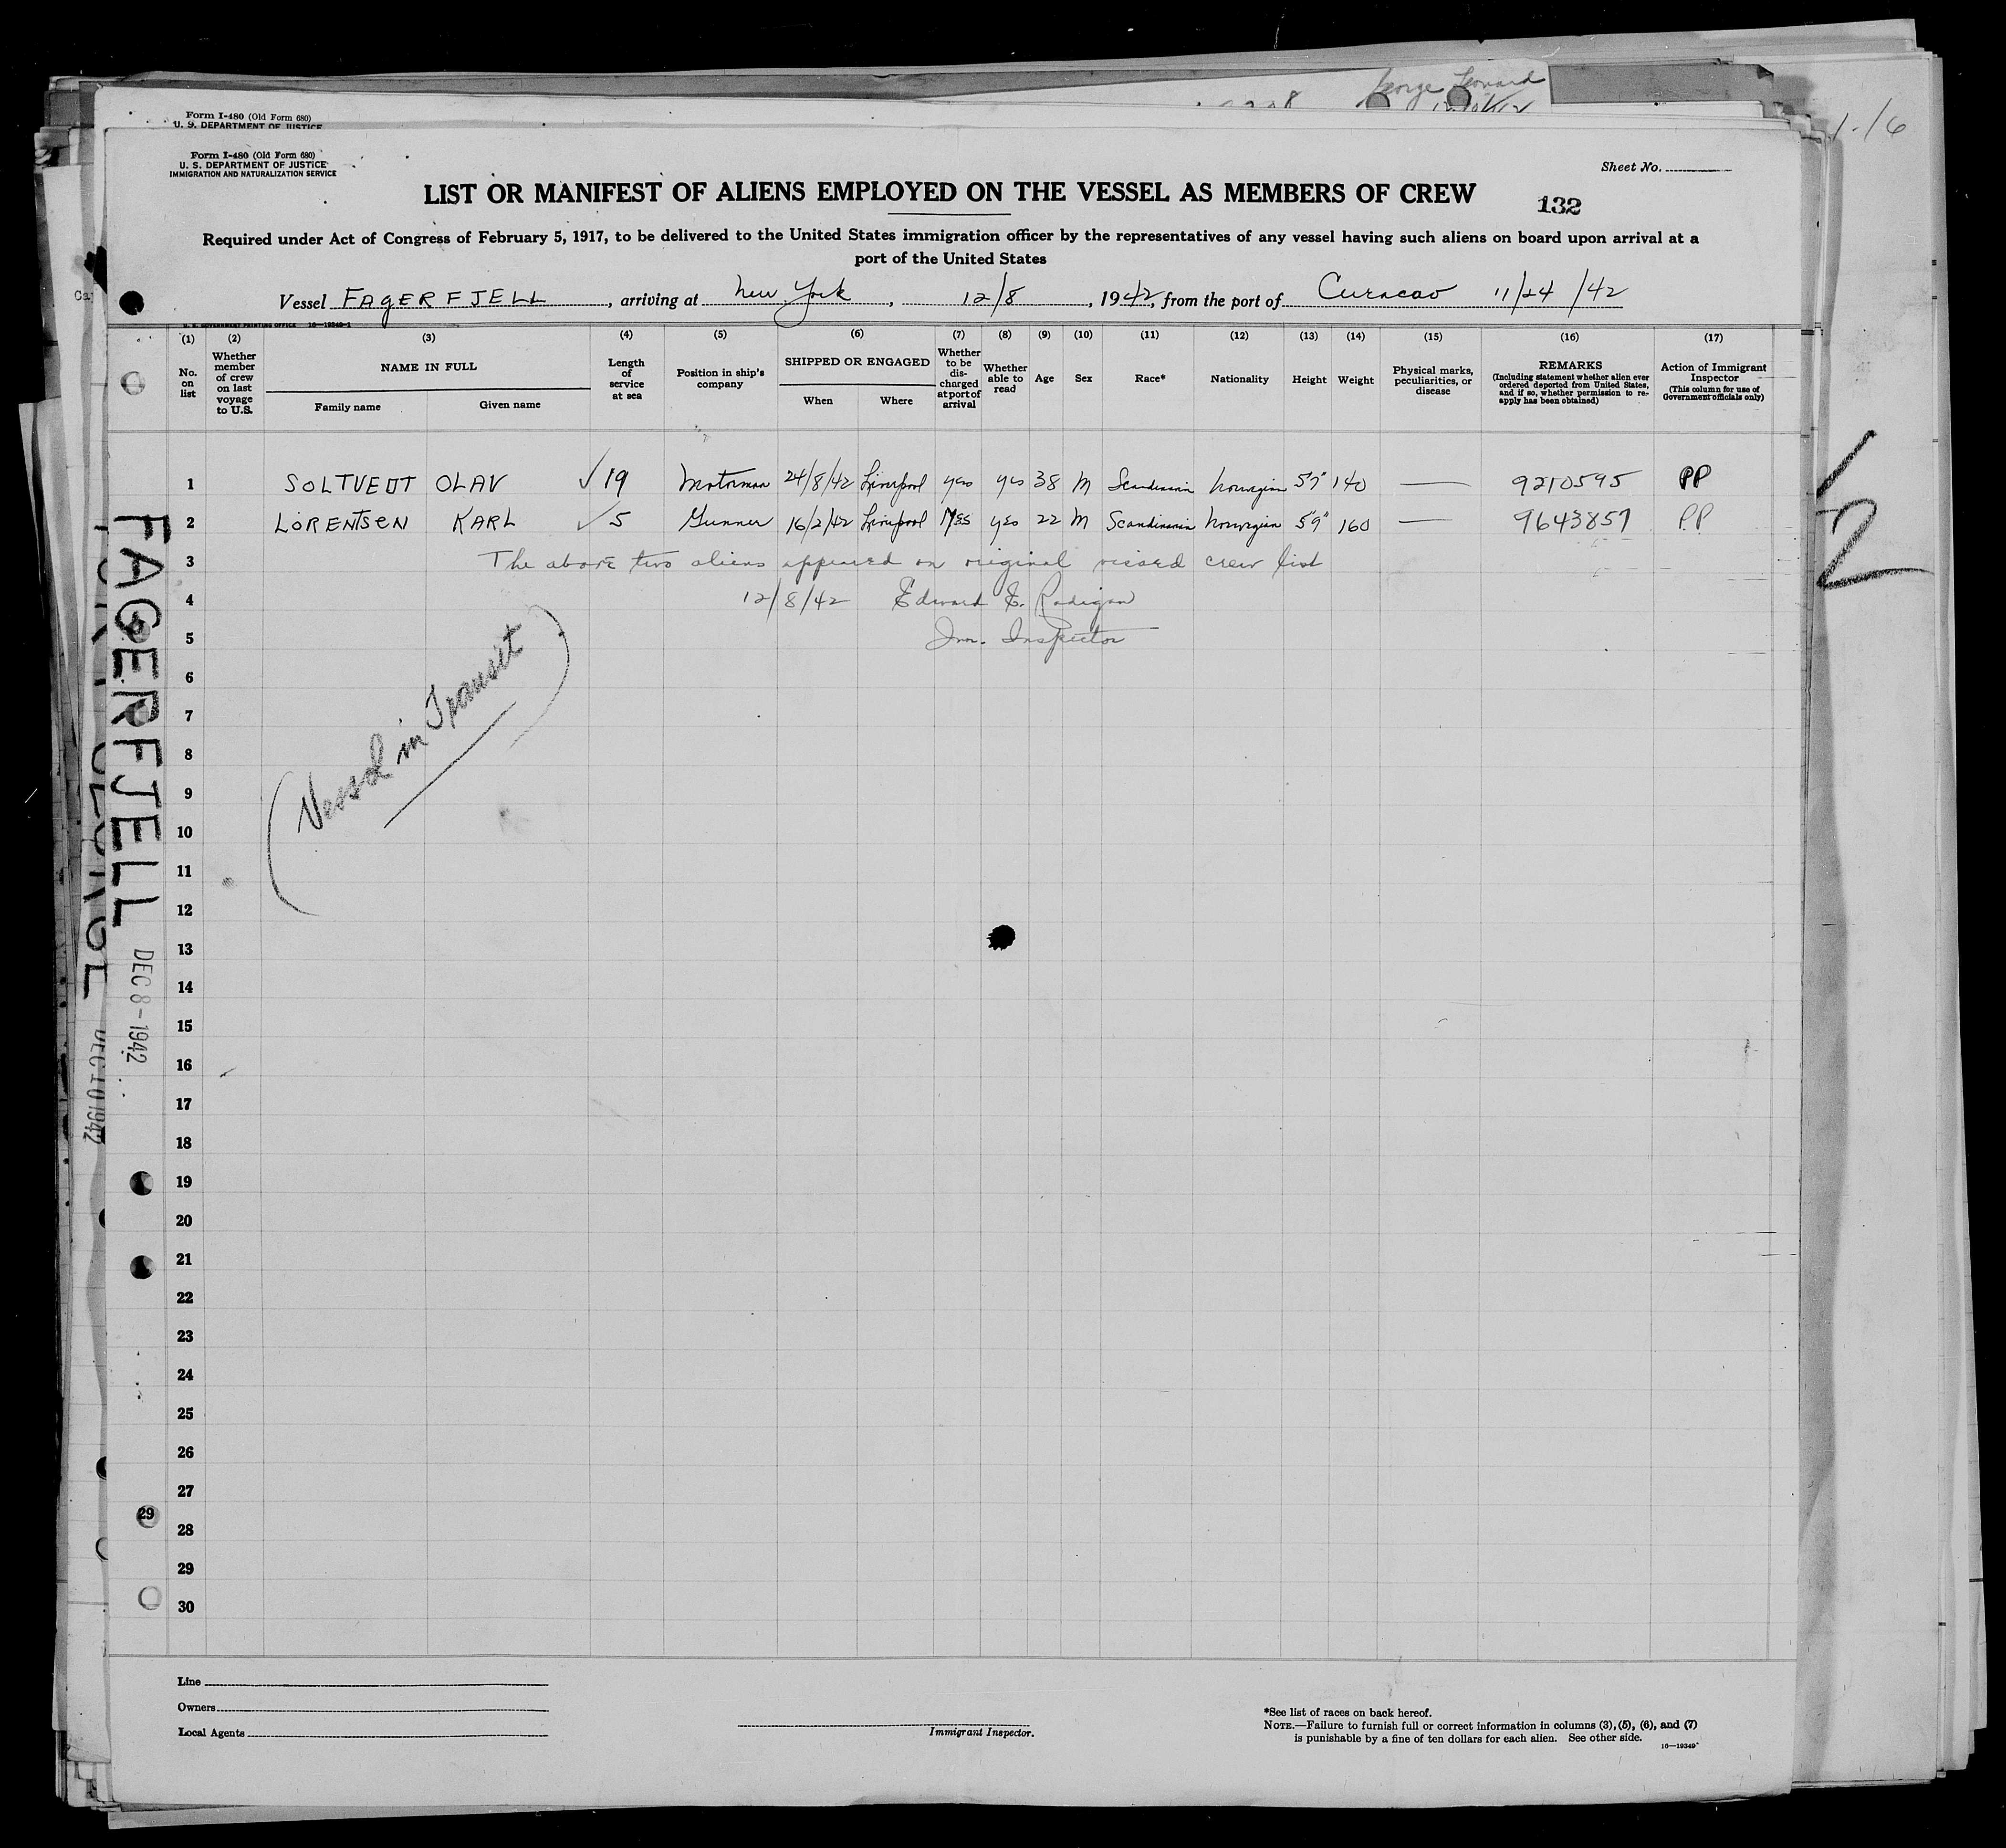 George Leonard
1-16
Form I-480 (Old Form 680)
U. S. DEPARTMENT OF JUSTICE
Form I-480 (Old Form 680)
U. S. DEPARTMENT OF JUSTICE
IMMIGRATION AND NATURALIZATION SERVICE
Sheet No.
LIST OR MANIFEST OF ALIENS EMPLOYED ON THE VESSEL AS MEMBERS OF CREW
132
Required under Act of Congress of February 5, 1917, to be delivered to the United States immigration officer by the representatives of any vessel having such aliens on board upon arrival at a
port of the United States
Vessel FAGERFJELL, arriving at New York, 12/8, 1942, from the port of Curacao 11/24/42
U. S. GOVERNMENT PRINTING OFFICE 16—19349-1
(1) No. on list
(2) Whether member of crew on last voyage to U.S.
(3) NAME IN FULL
Family name Given name
(4) Length of service at sea
(5) Position in ship's company
(6) SHIPPED OR ENGAGED
When Where
(7) Whether to be discharged at port of arrival
(8) Whether able to read
(9) Age
(10) Sex
(11) Race*
(12) Nationality
(13) Height
(14) Weight
(15) Physical marks, peculiarities, or disease
(16) REMARKS (Including statement whether alien ever ordered deported from United States, and if so, whether permission to reapply has been obtained)
(17) Action of Immigrant Inspector (This column for use of Government officials only)
1 SOLTVEDT OLAV ✓ 19 Motorman 24/8/42 Liverpool yes yes 38 M Scandinavian Norwegian 5'7" 140 — 9210595 PP
2 LORENTSEN KARL ✓ 5 Gunner 16/2/42 Liverpool yes yes 22 M Scandinavian Norwegian 5'9" 160 — 9643857 PP
3 The above two aliens appeared on original visaed crew list
4 12/8/42 Edward E. Radigan
5 Imm. Inspector
6
7
8
9
10
11
12
13
14
15
16
17
18
19
20
21
22
23
24
25
26
27
28
29
30
(Vessel in Transit)
FAGERFJELL DEC 8 - 1942
DEC 10 1942
12
29
Line
Owners
Local Agents
Immigrant Inspector.
*See list of races on back hereof.
NOTE.—Failure to furnish full or correct information in columns (3), (5), (6), and (7)
is punishable by a fine of ten dollars for each alien. See other side.
16—19349